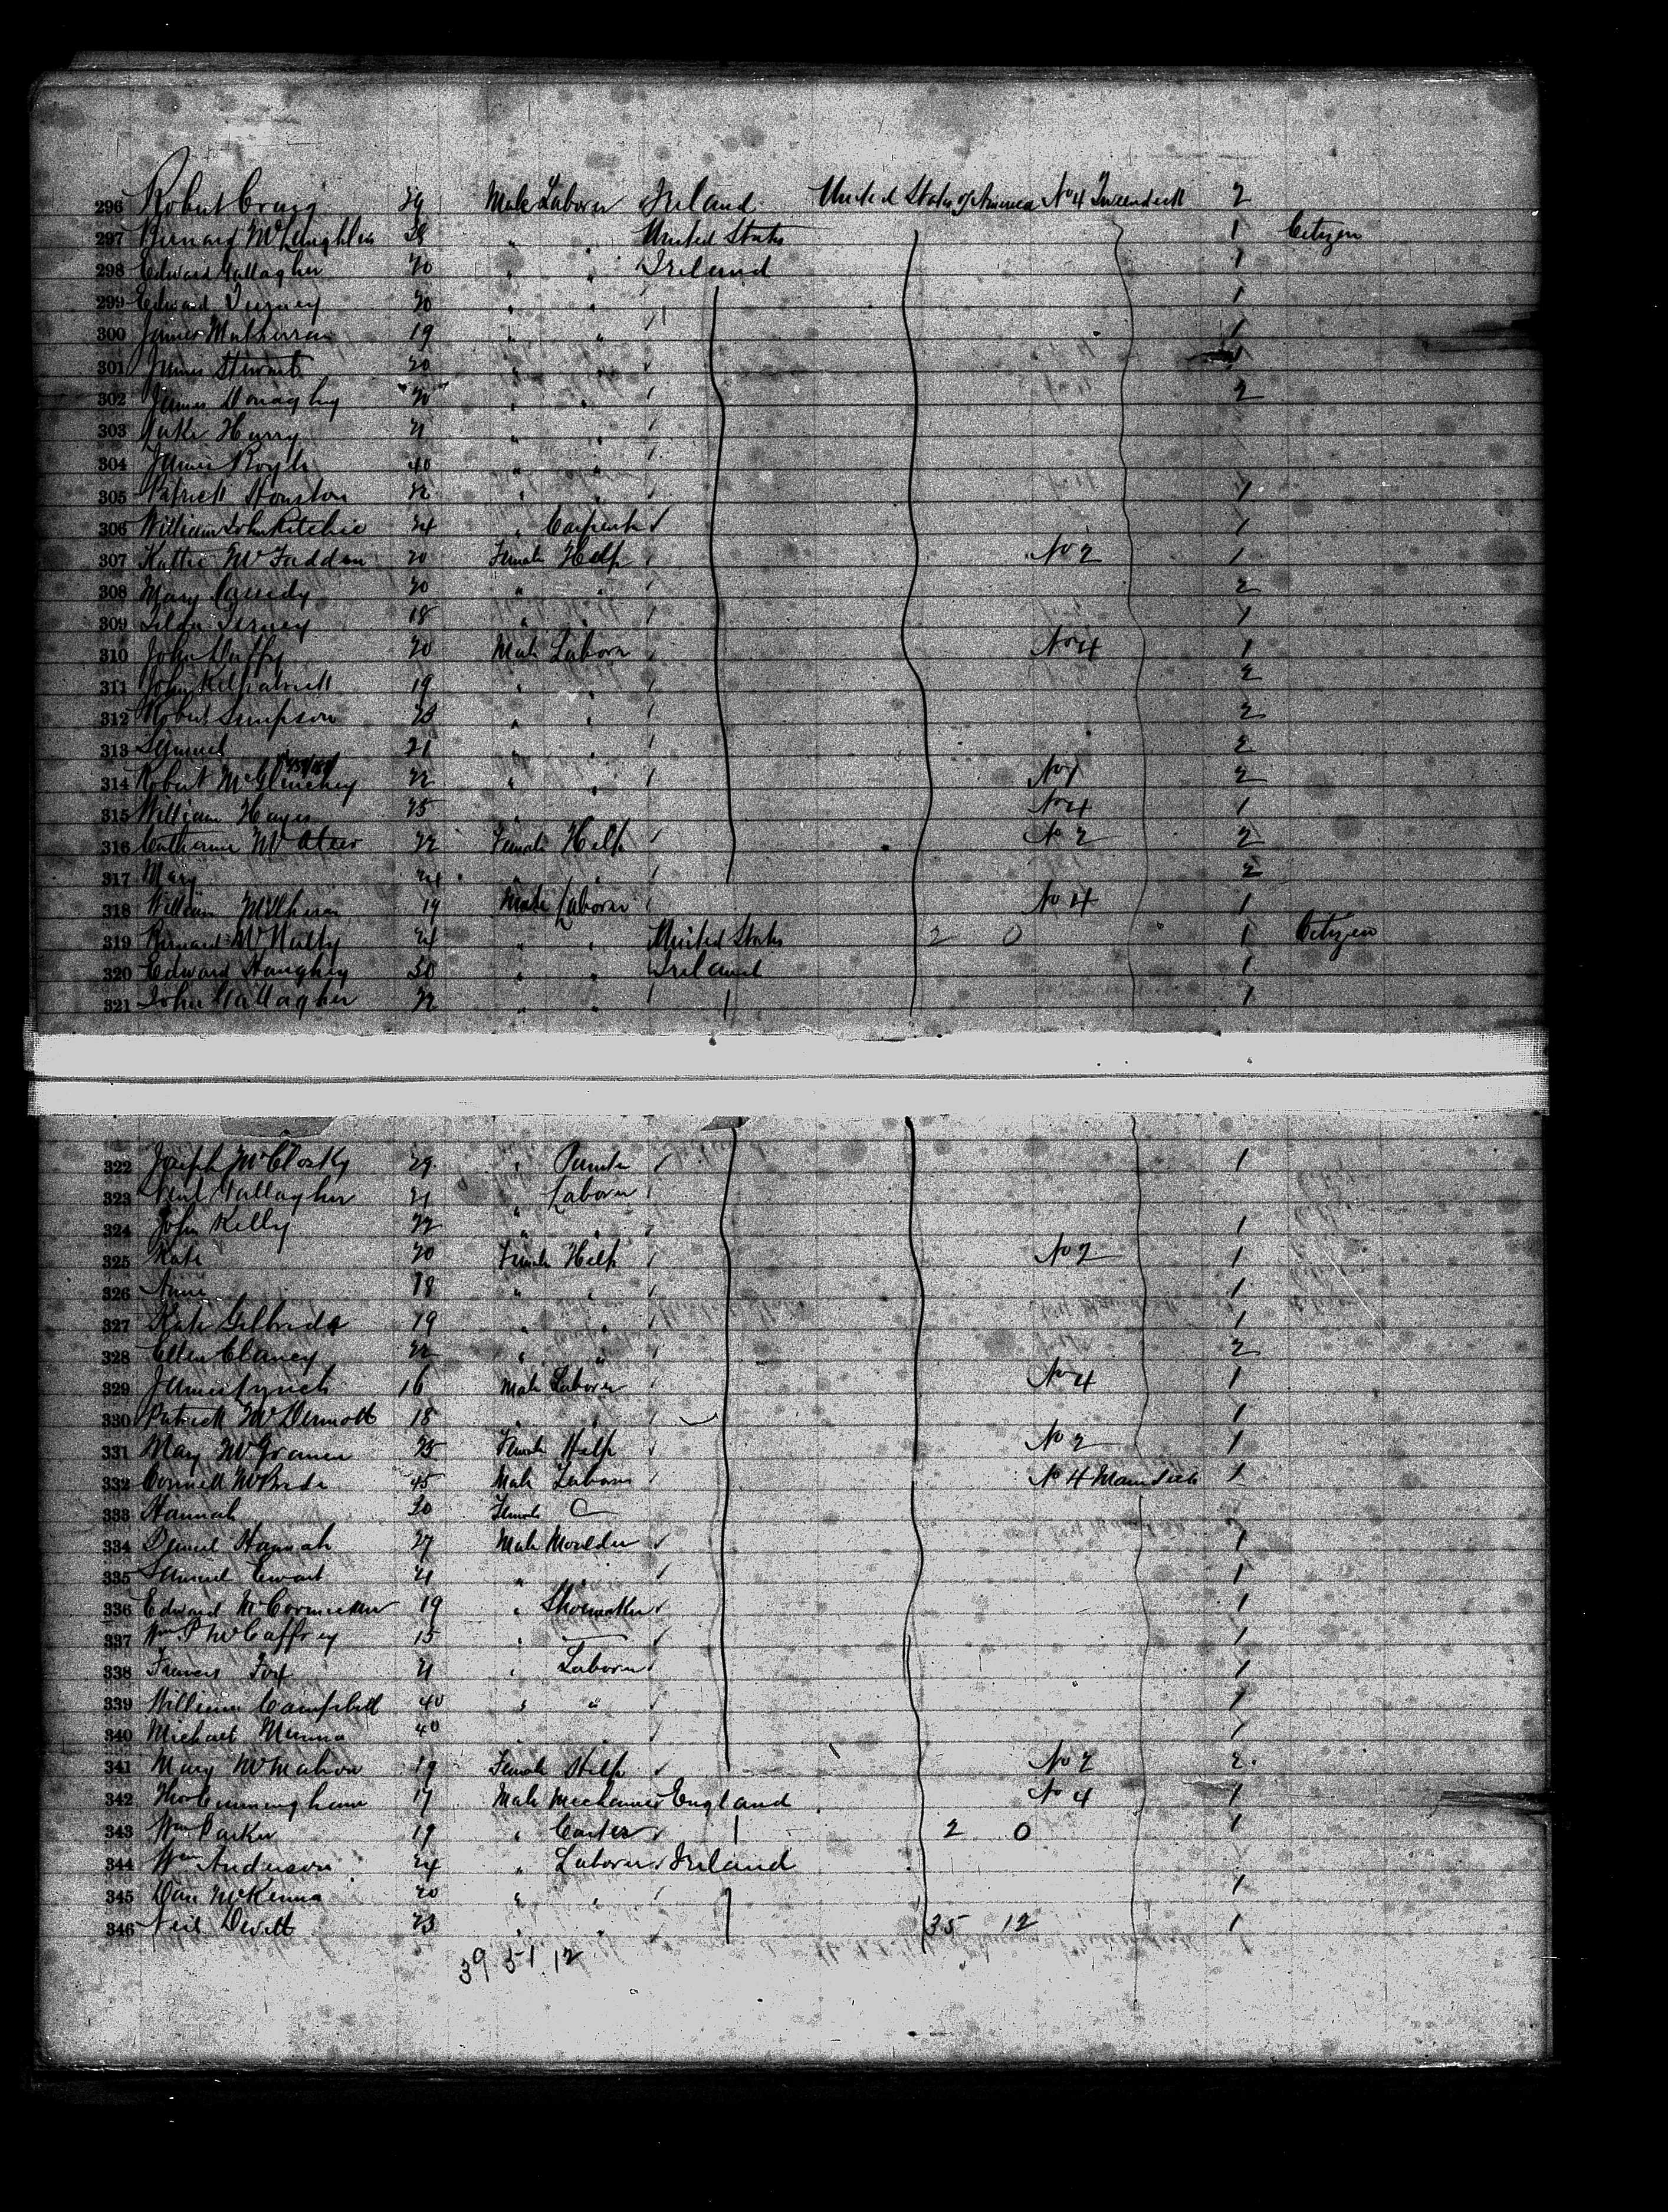 296 Robert Craig 29 Male Laborer Ireland United States of America No 4 Tweendeck 2
297 Bernard McLaughlin 28 " " United States 1 Citizen
298 Edward Gallagher 20 " " Ireland 1
299 Edward 20 " " 1
300 James 19 " " 1
301 James Stewart 20 " "
302 James Donaghy 20 " " 2
303 Harry 21 " "
304 James Boyle 40 " "
305 Patrick Houston 22 " " 1
306 William John Ritchie 24 " Carpenter 1
307 Kattie McFadden 20 Female Help No 2 1
308 Mary Cassidy 20 " " 2
309 18 " " 1
310 John Duffy 20 Male Laborer No 4 1
311 John Kilpatrick 19 " " 2
312 Robert Simpson 23 " " 2
313 Samuel 21 " " 2
314 Robert McGlinchey 22 " " No 1 2
315 William Hayes 25 " No 4 1
316 Catharine McAteer 22 Female Help No 2 2
317 Mary 24 " " 2
318 William 19 Male Laborer No 4 1
319 Bernard McNulty 24 " " United States 2 0 1 Citizen
320 Edward Haughey 20 " " Ireland 1
321 John Gallagher 22 " " 1
322 Joseph McClosky 29 " 1
323 Neil Gallagher 21 " Laborer
324 John Kelly 22 " " 1
325 Kate 20 Female Help No 2 1
326 Annie 18 " " 1
327 Kate Gilbride 19 " " 1
328 Ellen Clancy 22 " " 2
329 James Lynch 16 Male Laborer No 4 1
330 Patrick McDermott 18 " " 1
331 Mary 25 Female Help No 2 1
332 McBride 45 Male Laborer No 4 Maindeck 1
333 Hannah 20 Female
334 Daniel Hannah 27 Male Moulder 1
335 Samuel Ewart 21 " " 1
336 Edward 19 " Shoemaker 1
337 Wm P McCaffrey 15 " 1
338 Francis Fox 21 " Laborer 1
339 William Campbell 40 " " 1
340 Michael 40 1
341 Mary McMahon 19 Female Help No 2 2
342 Thos Cunningham 17 Male Mechanic England No 4 1
343 Wm Parker 19 " Carter 2 0 1
344 Wm Anderson 24 " Laborer Ireland
345 Dan McKenna 20 " " 1
346 Neil Devitt 23 " " 35 12 1
39 51 12